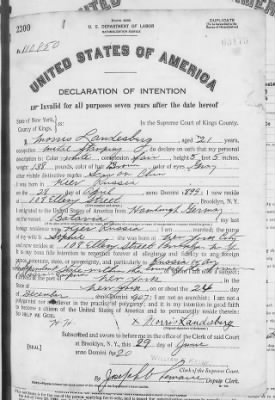 2200
U. S. DEPARTMENT OF LABOR
NATURALIZATION SERVICE
DUPLICATE
UNITED STATES OF AMERICA
DECLARATION OF INTENTION
Invalid for all purposes seven years after the date hereof
State of New York,
County of Kings,
In the Supreme Court of Kings County.
I, Morris Landesberg, aged 21 years,
occupation Metal Stamping, do declare on oath that my personal
description is: Color white, complexion Fair, height 5 feet 5 inches,
weight 138 pounds, color of hair Brown, color of eyes Grey
other visible distinctive marks Scar on Chin
I was born in Kiev Russia
on the 28 day of April, anno Domini 1899; I now reside
at 108 Ellery Street, Brooklyn, N.Y.
I emigrated to the United States of America from Hamburg Germany
on the vessel Batavia; my last
foreign residence was Kiev Russia; I am married; the name
of my wife is Sophie; she was born at New York City
and now resides at 108 Ellery Street Brooklyn N.Y.
It is my bona fide intention to renounce forever all allegiance and fidelity to any foreign
prince, potentate, state, or sovereignty, and particularly to
Independent State within the bounds of
port of New York, in the
State of New York, on or about the 24 day
of December, anno Domini 1907; I am not an anarchist; I am not a
polygamist nor a believer in the practice of polygamy; and it is my intention in good faith
to become a citizen of the United States of America and to permanently reside therein:
SO HELP ME GOD.
x Morris Landesberg
Subscribed and sworn to before me in the office of the Clerk of said Court
at Brooklyn, N. Y., this 29 day of June
anno Domini 1920
[SEAL]
Clerk of the Supreme Court.
By Joseph, Deputy Clerk.